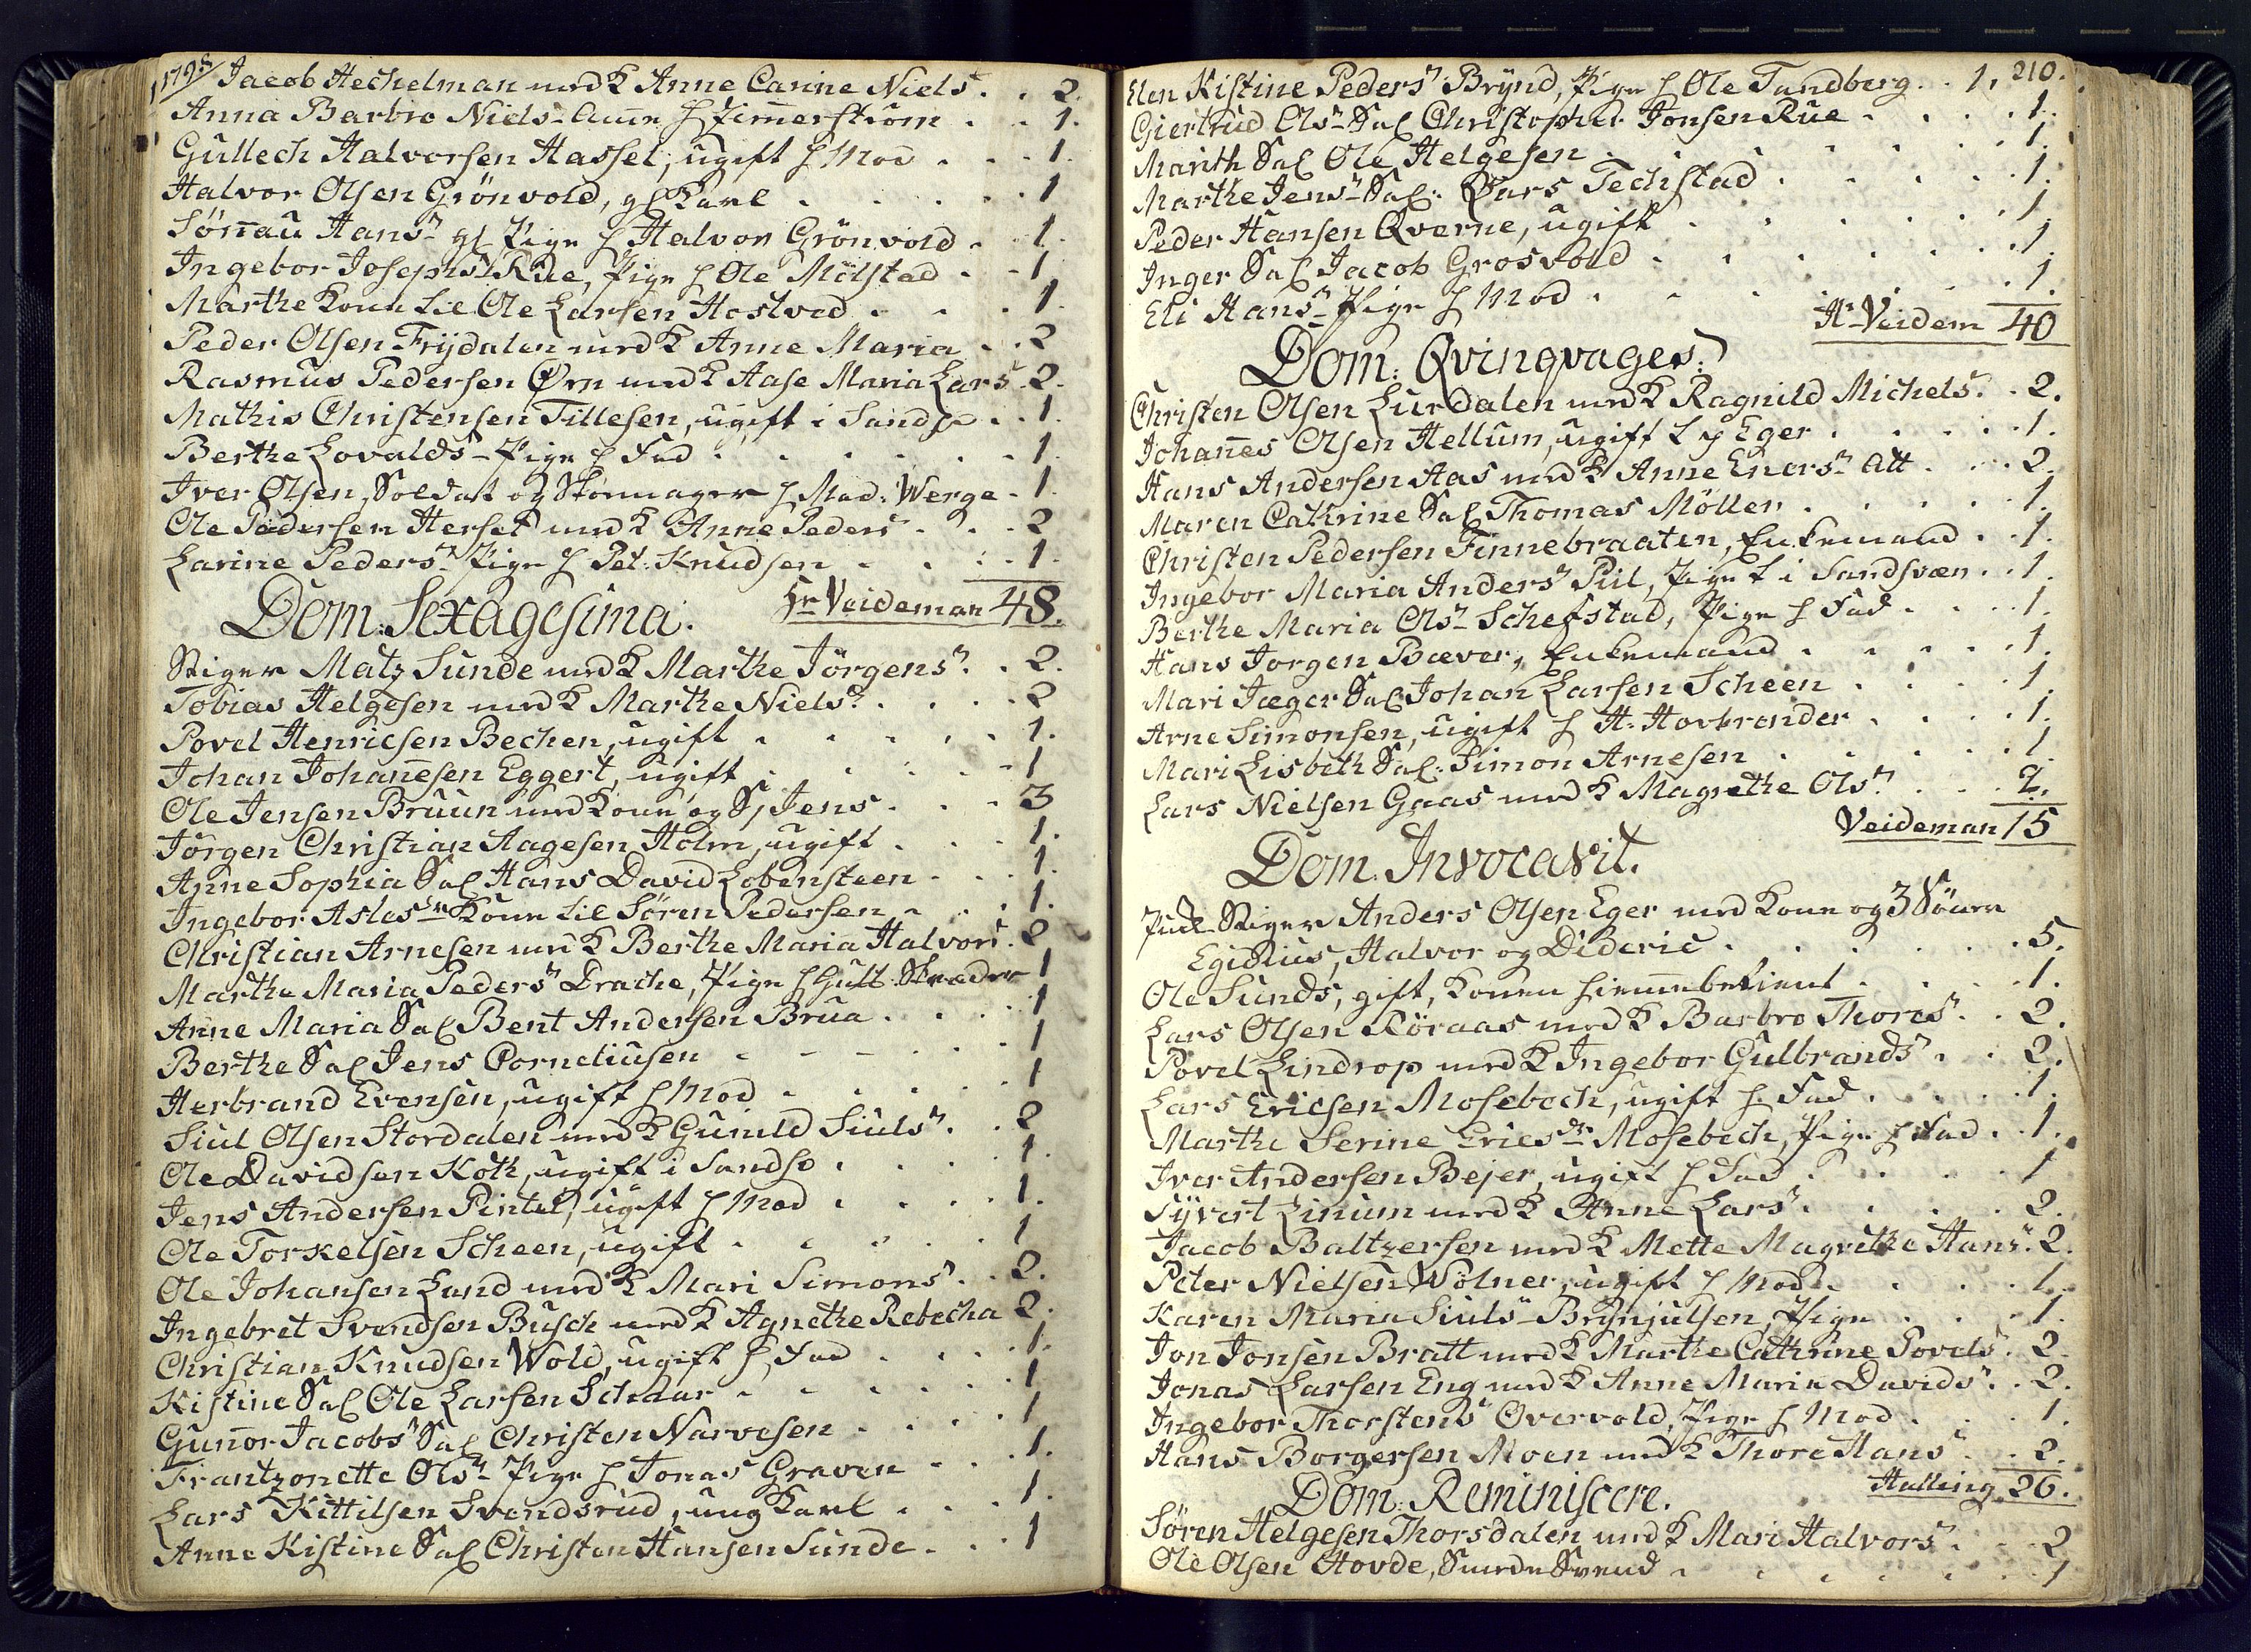 1798
Jacob Hechelman med K Anne Carine Niels. . 2.
Anna Barbro Niels- h Zimerström . . 1.
Gullech Halvorsen Hassel, ugift h Mod . . . 1.
Halvor Olsen Grönvold, gl Karl . . . . . 1
Sönnau Hans gl Pige h Halvor Grönvold . . 1.
Ingebor Josephs Rue, Pige h Ole Mölstad . . 1
Marthe Konen til Ole Larsen Hostved . . . 1.
Peder Olsen Frydalen med K Anne Maria . . 2
Rasmus Pedersen Örn med K Aase Maria Lars . 2.
Mathis Christensen Tillesen, ugift i Sandsv . . 1.
Berthe Lovalds- Pige h Fad . . . . . . 1.
Iver Olsen, Soldat og Skomager h Mad: Werge . 1.
Ole Pedersen Hersel med K Anne Peders . . . 2
Larine Peders Pige h Pet: Knudsen . . . . 1.
Dom: Sexagesima. Hr Veideman 48.
Stiger Matz Sunde med K Marthe Jörgens . . 2.
Tobias Helgesen med K Marthe Niels . . . . 2
Povel Henricsen Bechen, ugift . . . . . 1.
Johan Johannesen Eggert, ugift . . . . . 1
Ole Jensen Bruun med Kone og S, Jens . . . 3
Jörgen Christian Aagesen Holm, ugift . . . 1.
Anne Sophia Sal Hans David Lobensteen . . . 1.
Ingebor Asles Konen til Sören Pedersen . . . 1.
Christian Arnesen med K Berthe Maria Halvors . 2
Marthe Maria Peders Drache, Pige h Gulb. Skræder 1
Anne Maria Sal Bent Andersen Brua . . . . 1
Berthe Sal Jens Corneliusen . . . . . . 1
Herbrand Evensen, ugift h Mod . . . . . 1
Siul Olsen Stordalen med K Gunild Siuls . . 2
Ole Davidsen Koth, ugift i Sandsv . . . . 1.
Jens Andersen Pintel, ugift h Mod . . . . 1.
Ole Torkelsen Scheen, ugift . . . . . 1
Ole Johansen Land med K Mari Simons . . 2.
Ingebret Svendsen Busch med K Agnethe Rebecha 2.
Christian Knudsen Wold, ugift h Fad . . . 1.
Kistine Sal Ole Larsen Schaar . . . . . 1
Gunnor Jacobs Sal Christen Narvesen . . . . 1
Frantzonette Ols- Pige h Jonas Graven . . . 1.
Lars Kittilsen Svendsrud, ung Karl . . . 1.
Anne Kistine Sal Christen Hansen Sunde . . . 1
210.
Elen Kistine Peders Brynd, Pige h Ole Tandberg . . 1.
Giertrud Ols- Sal Christopher Jonsen Rue . . . . 1.
Marith Sal Ole Helgesen . . . . . . 1.
Marthe Jens- Sal: Lars Techstad . . . . . 1.
Peder Hansen Qverne, ugift . . . . . . 1.
Inger Sal Jacob Grosvold . . . . . . 1
Eli Hans- Pige h Mod . . . . . . 1.
Hr Veidem 40
Dom: Qvinqvages:
Christen Olsen Lurdalen med K Ragnild Michels . . 2.
Johannes Olsen Hellum, ugift t p Eger . . . . 1.
Hans Andersen Aas med K Anne Eners- Att . . . 2.
Maren Cathrine Sal Thomas Möller . . . . . 1.
Christen Pedersen Finnebraaten, Enkemand . . 1.
Ingebor Maria Anders Piil, Pige t i Sandsvær . . 1.
Berthe Maria Ols- Schefstad, Pige h Fad . . . . 1.
Hans Jorgen Bæver, Enkemand . . . . . 1.
Mari Jæger Sal Johan Larsen Scheen . . . . 1
Arne Simonsen, ugift h H. Hovbrender . . . . 1.
Mari Lisbeth Sal: Simon Arnesen . . . . . 1
Lars Nielsen Gaas med K Magrethe Ols . . . 2.
Veideman 15
Dom. Invocavit.
Stiger Anders Olsen Eger med Kone og 3 Sönner
Egidius, Halvor og Dideric . . . . . . 5.
Ole Sunds, gift, Konen hiemmebetient . . . . 1.
Lars Olsen Röraas med K Barbro Thores . . 2.
Povel Lindrop med K Ingebor Gulbrands . . 2.
Lars Ericsen Mosebech, ugift h Fad . . . . . 1.
Marthe Serine Erics Mosebech, Pige h Fad . . 1.
Iver Andersen Bejer, ugift h Fad . . . . 1
Syvert Linum med K Anne Lars . . . . 2.
Jacob Baltzersen med K Mette Magrethe Hans . 2.
Peter Nielsen Wölner, ugift h Mod . . . . 1.
Karen Maria Siuls- Brynjulsen, Pige . . . 1.
Jon Jonsen Bratt med K Marthe Cathrine Povels . 2
Jonas Larsen Eng med K Anne Maria Davids . . 2.
Ingebor Thorstens Overvold, Pige h Mod . . . 1.
Hans Borgersen Moen med K Thore Hans . . 2.
Dom: Reminiscere. Halling 26.
Sören Helgesen Thorsdalen med K Mari Halvors . . 2
Ole Olsen Hovde, Smede Svend . . . . . . 1